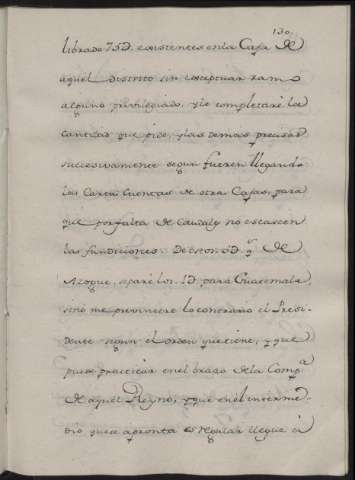 130.
librado 75D. existentes en la Caxa de
aquel Distrito sin exceptuar ramo
alguno privilegiado, y le completaré la
cantidad que pide, y las demas precisas
succesivamente segun fueren llegando
las Carta Cuentas de otras Caxas, para
que por falta de Caudales no escaseen
las fundiciones. De estos 6D. q.s de
Azogue, separé los 1D. para Guatemala,
sino me previniere lo contrario el Presi-
dente segun el orden que tiene, y que
puede practicar en el brazo de la Comp.a
de aquel Reyno, y que en el interme-
dio, que se apronta es regular llegue á